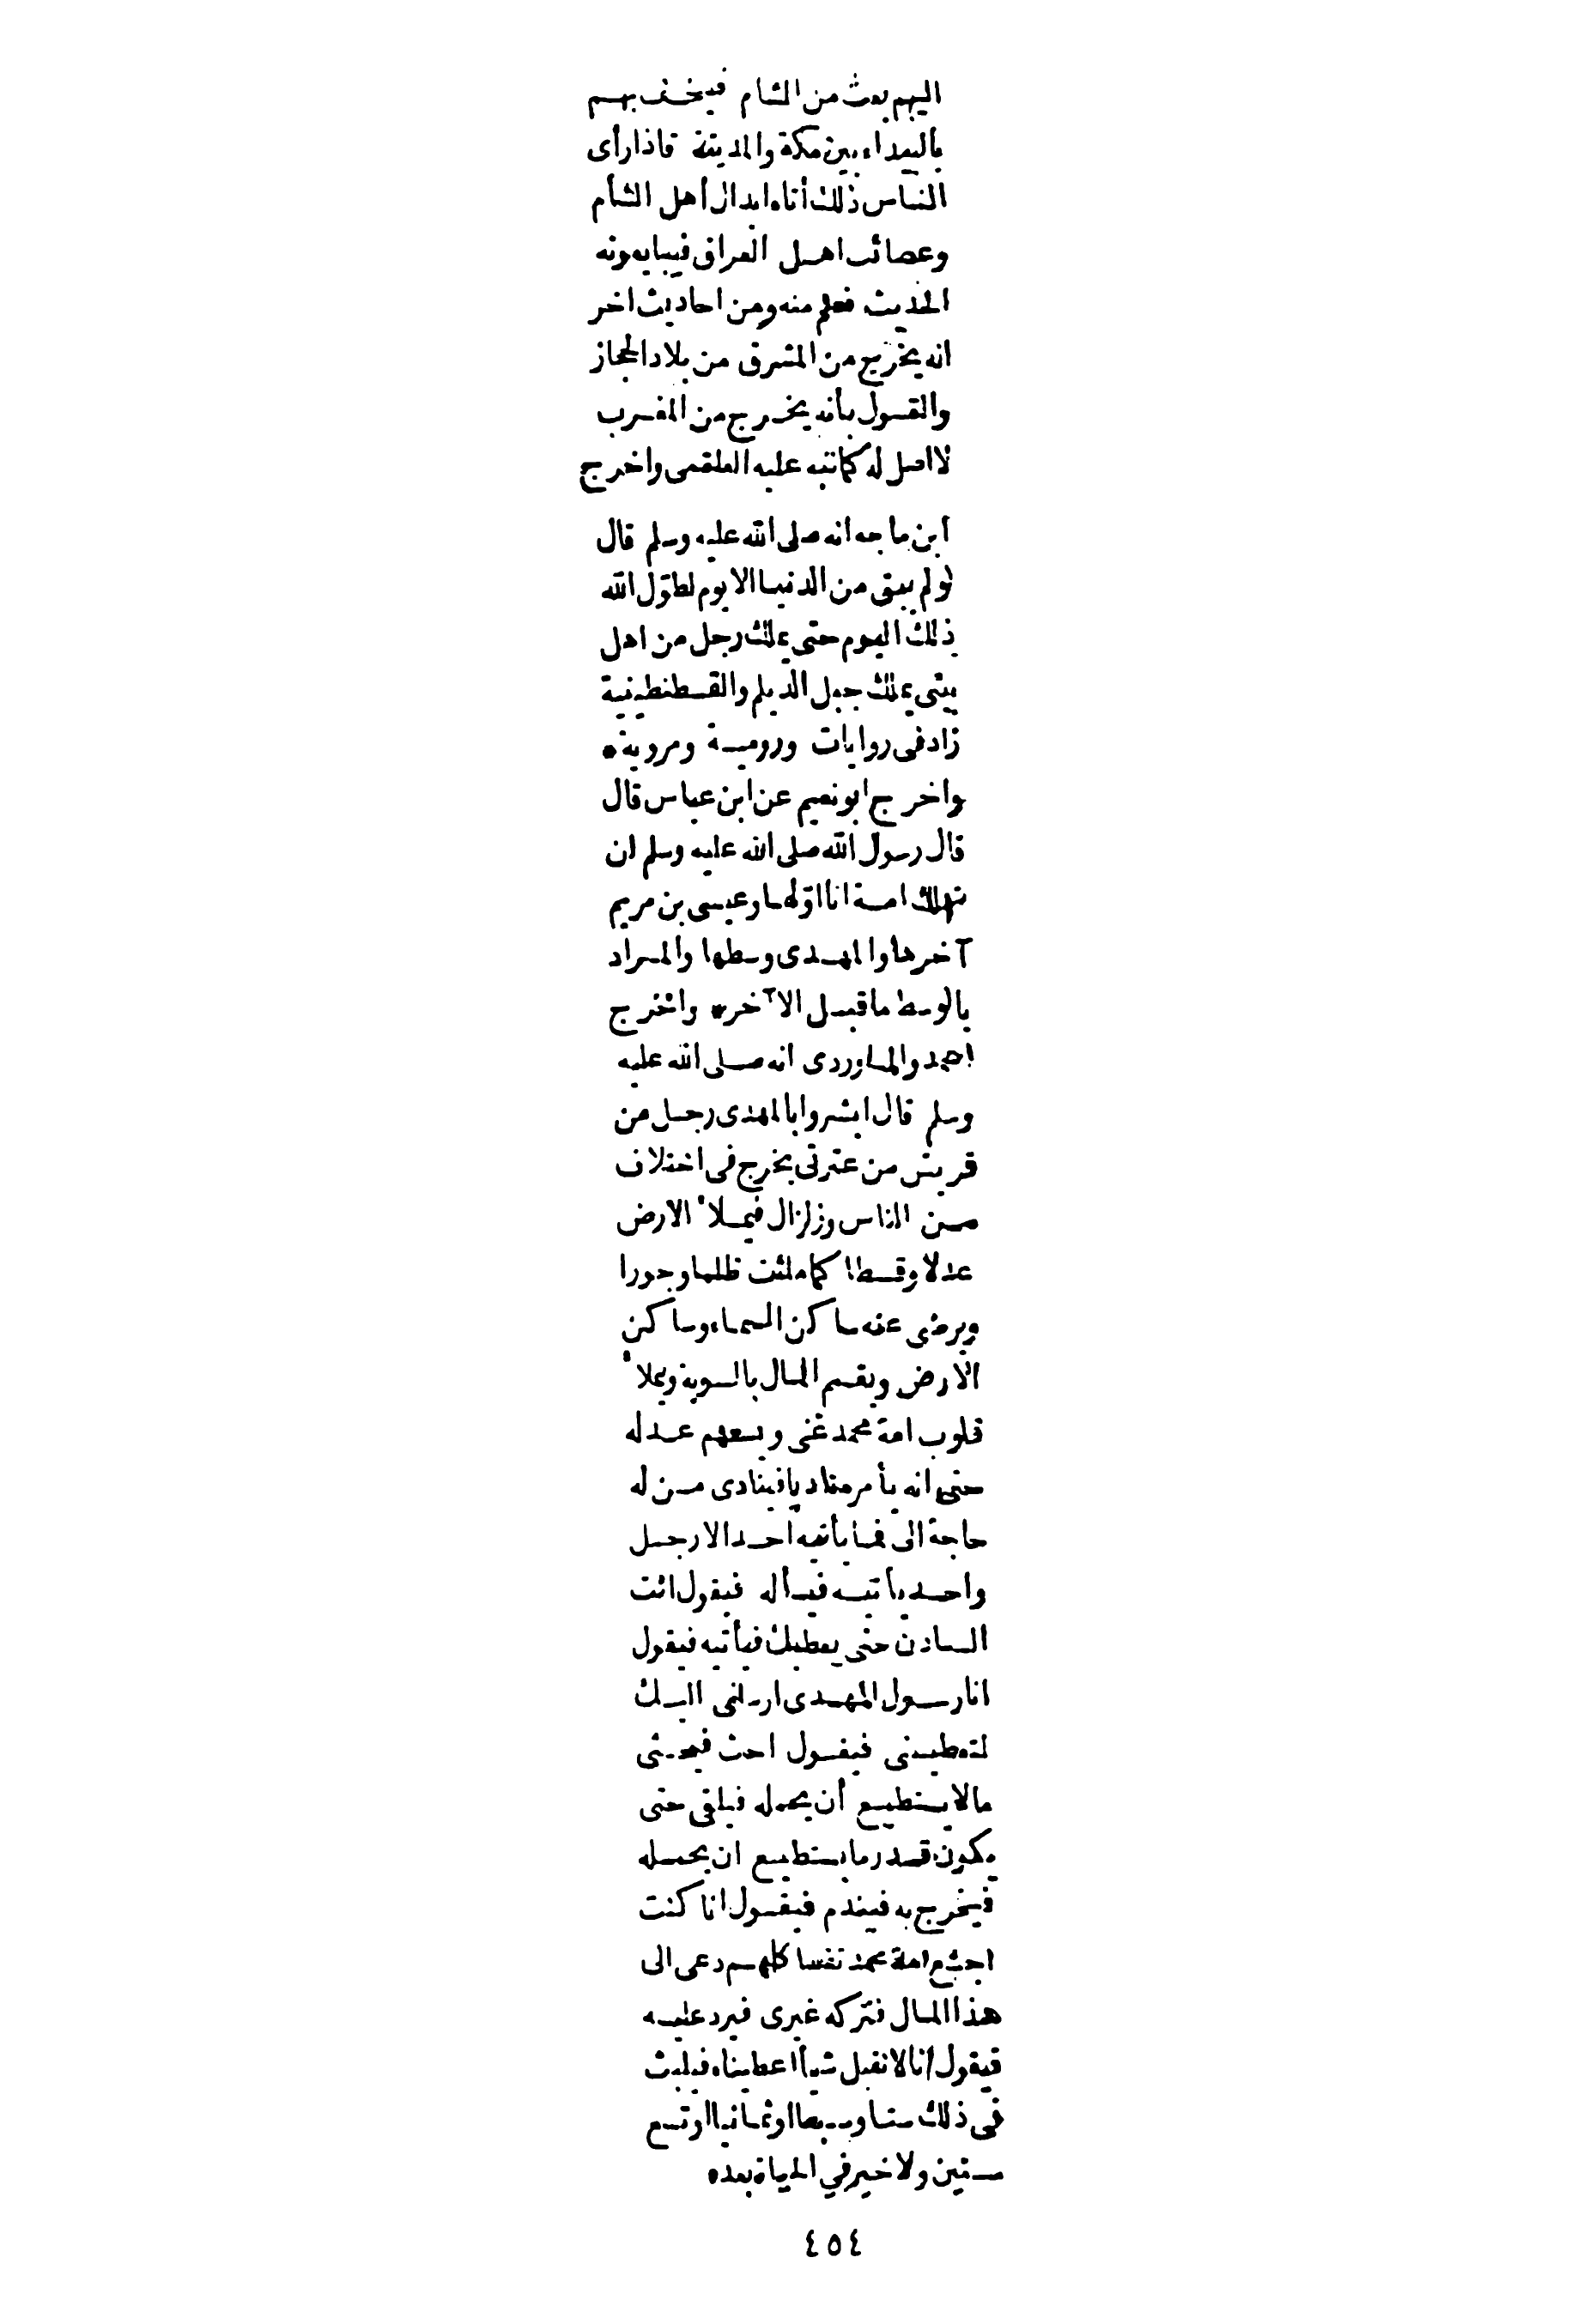 اليهم بعث من الشام فيخسف بهم
بالبيداء بين مكة والمدينة فاذا رأى
الناس ذلك أتاه ابدال أهل الشأم
وعصائب اهل العراق فيبايعونه
الحديث فعلم منه ومن احاديث اخر
انه يخرج من المشرق من بلاد الحجاز
والقول بأنه يخرج من المغرب
لا اصل له كما نبه عليه العلقمى واخرج
ابن ماجه انه صلى الله عليه وسلم قال
لو لم يبق من الدنيا الا يوم لطوّل الله
ذلك اليوم حتى يملك رجل من اهل
بيتى يملك جبل الديلم والقسطنطينية
زاد فى روايات ورومية ومروية *
واخرج ابو نعيم عن ابن عباس قال
قال رسول الله صلى الله عليه وسلم لن
تهلك امة انا اوّلها وعيسى بن مريم
آخرها والمهدى وسطها والمراد
بالوسط ما قبل الآخر * واخرج
احمد والماوردى انه صلى الله عليه
وسلم قال ابشروا بالمهدى رجل من
قريش من عترتى يخرج فى اختلاف
من الناس وزلزال فيملأ الارض
عدلا وقسطا كما ملئت ظلما وجورا
ويرضى عنه ساكن السماء وساكن
الارض ويقسم المال بالسوية ويملأ
قلوب امة محمد غنى ويسعهم عدله
حتى انه يأمر مناديا فينادى من له
حاجة الى فما يأتيه احد الا رجل
واحد يأتيه فيسأله فيقول ائت
السادن حتى يعطيك فيأتيه فيقول
انا رسول المهدى ارسلنى اليك
لتعطينى فيقول احث فيحثى
مالا يستطيع أن يحمله فيلقى حتى
يكون قدر ما يستطيع ان يحمله
فيخرج به فيندم فيقول انا كنت
اجشع امة محمد نفسا كلهم دعى الى
هذا المال فتركه غيرى فيرد عليه
فيقول انا لا نقبل شيأ اعطيناه فيلبث
فى ذلك ستا وسبعا او ثمانيا او تسع
سنين ولا خير في الحياة بعده
٤٥٤